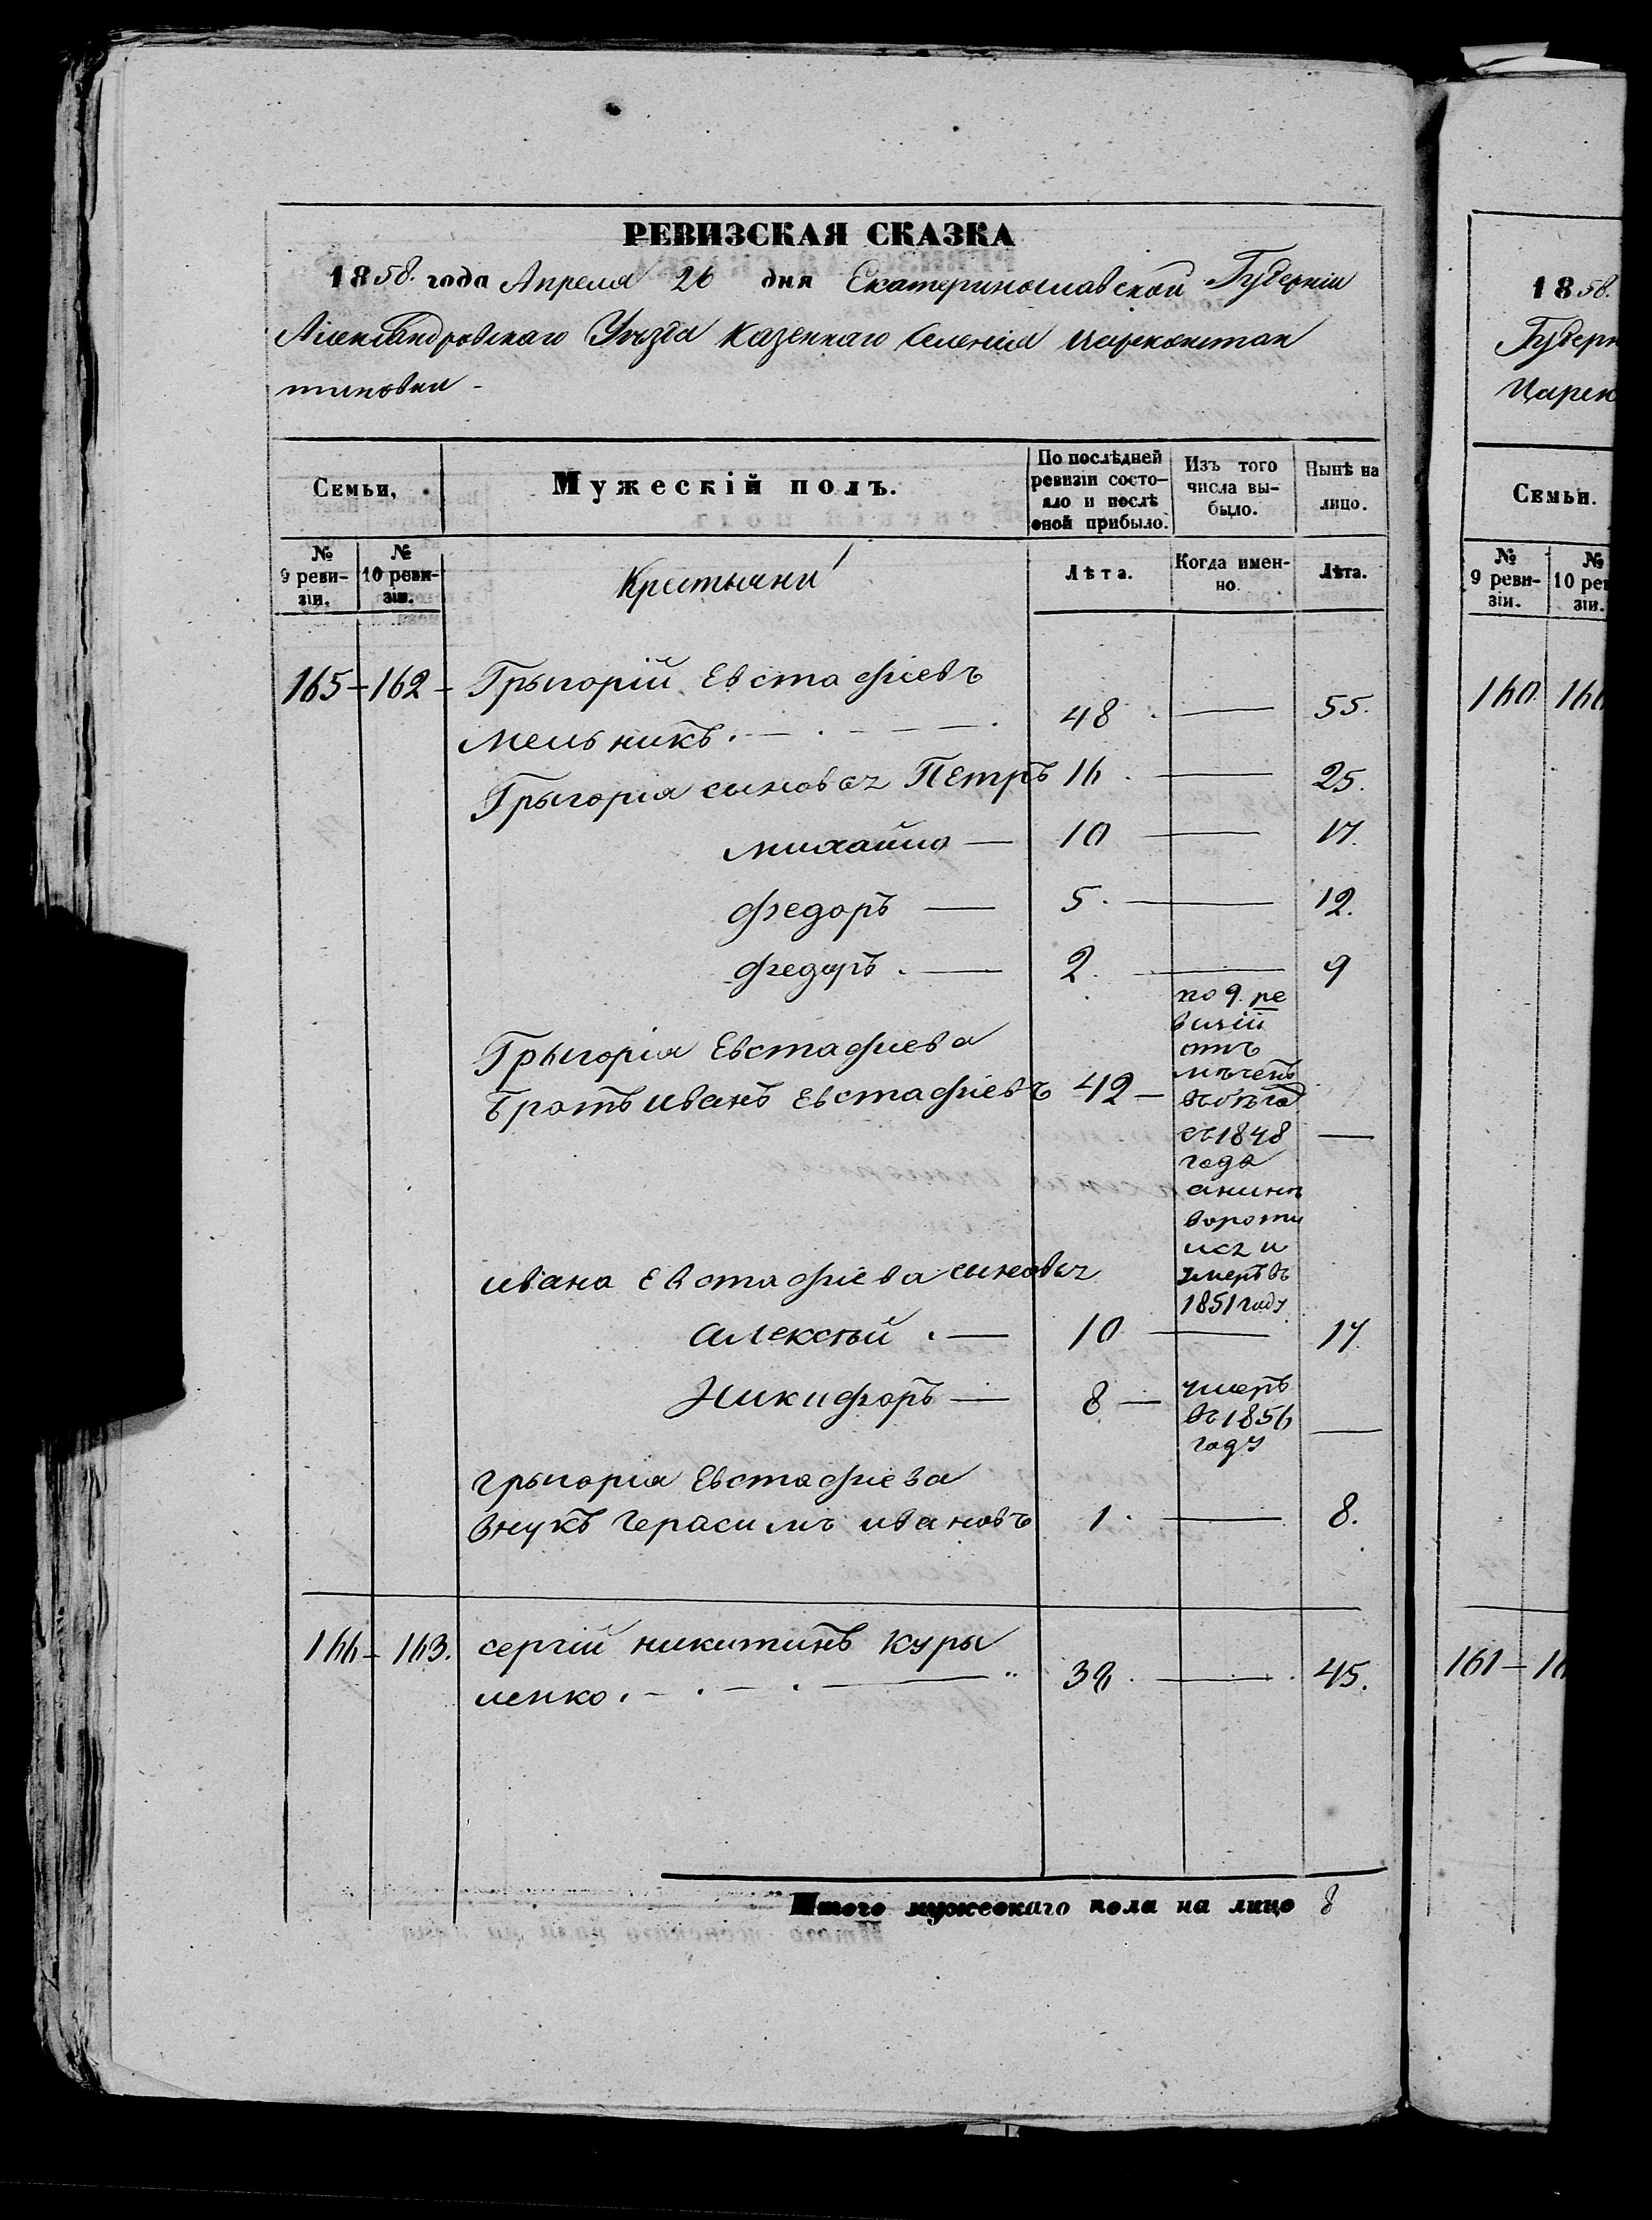 РЕВИЗСКАЯ СКАЗКА
1858. года Апреля 26 дня Екатеринославской Губерніи
Александровскаго Уѣзда Казеннаго Селенія Цареконстан
тиновки -
Семьи,
Мужескій полъ.
По послѣдней ревизіи состо-
яло и послѣ оной прибыло.
Изъ того числа вы-
было.
Нынѣ на лицо.
№ 9 реви-
зіи.
№ 10 реви-
зіи.
Крестьяни
Лѣта.
Когда имен-
но.
Лѣта.
165 - 162 - Грыгорій Евстафіевъ
Мельникъ. 48 . — 55.
Грыгорія сыновья Петръ 16 . — 25.
михайло — 10 — 17.
федоръ — 5. — 12.
федоръ . — 2. — 9
Грыгорія Евстафиева
братъ иванъ Евстафіевъ 42 —
по 9 ре
визіи
отъ
мѣченъ
въбѣга
съ 1848
года
анинѣ
вороти
лся и
умеръ въ
1851 году
—
ивана Евстафіева сыновья
алексѣй . — 10 — 17.
Никифоръ — 8 —
умеръ
въ 1856
году
—
грыгорія Евстафиева
внукъ герасимъ ивановъ 1. — 8.
166 - 163. сергій никитинъ Куры
ленко. 38 . — 45.
Итого мужескаго пола на лицо 8
1858.
Губерн
Царек
Семьи.
№ 9 реви-
зіи.
№ 10 рев
зіи.
160 16
161 - 1